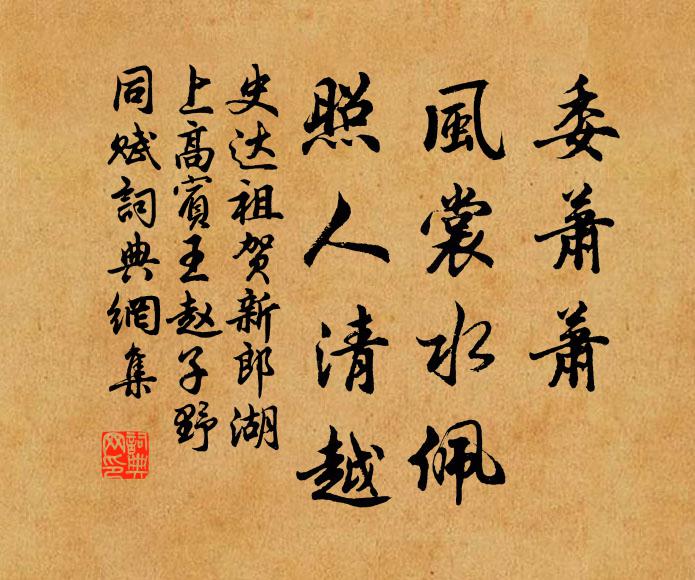 委蕭蕭
風裳水佩
照人清越
史达祖贺新郎湖
上高賓王赵子野
同赋詞典網集
詞典
网印